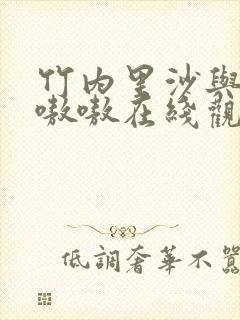 竹内里沙與
嗷嗷在綫觀
低調奢華不囂